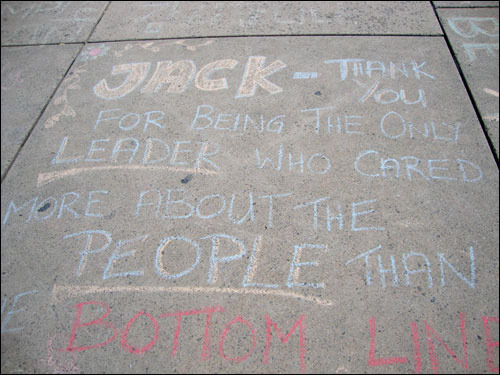 JACK - THANK
YOU
FOR BEING THE ONLY
LEADER WHO CARED
MORE ABOUT THE
PEOPLE THAN
BOTTOM LINE